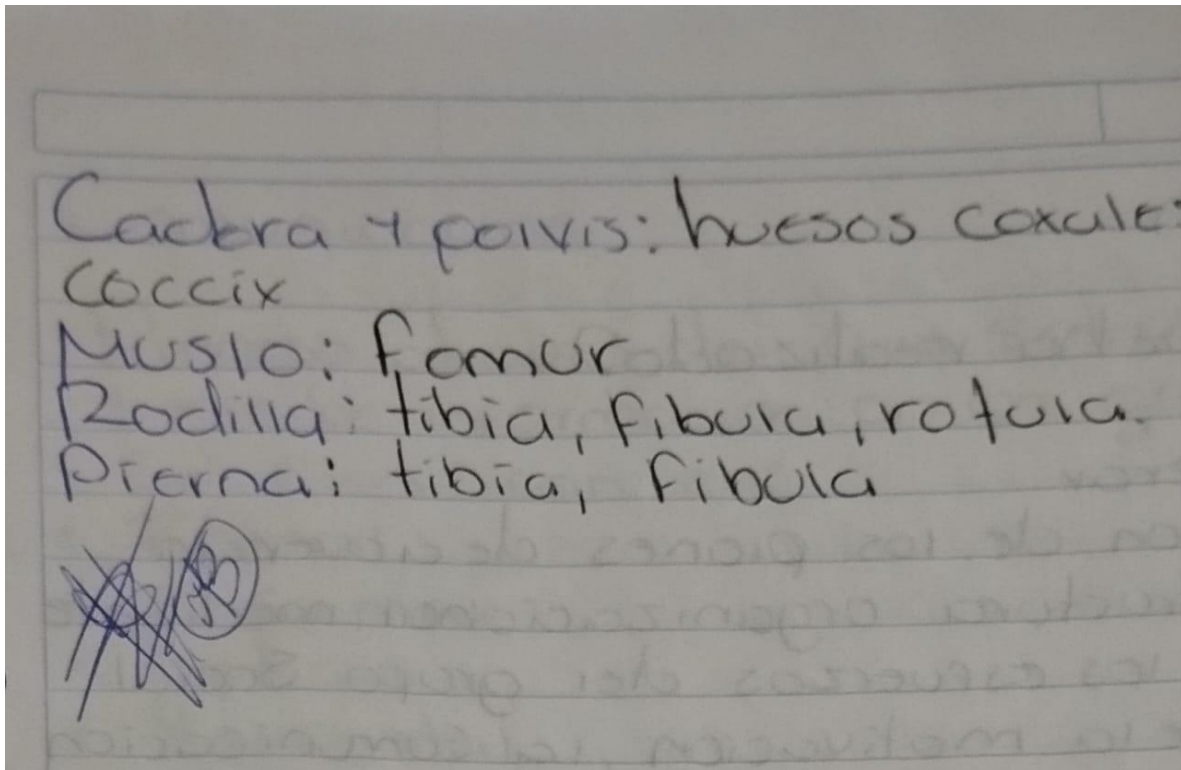 Cadera y polvis: huesos coxales
Coccix
Muslo: fomur
Rodilla: tibia, fibula, rotula.
Pierna: tibia, fibula